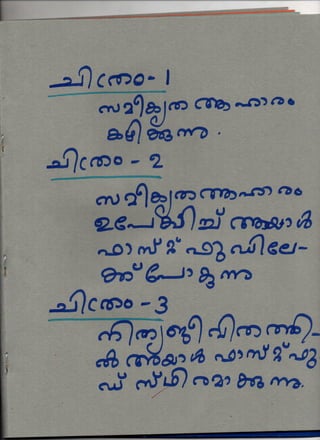 ചിത്രം-1
സമീകൃത ആഹാരം
കഴിക്കുന്നു.
ചിത്രം - 2
സമീകൃത ആഹാരം
ഉപേക്ഷിച്ച് അയാൾ
ഫാസ്റ്റ് ഫുഡിലേ-
ക്ക് പോകുന്നു
ചിത്രം - 3
നിത്യജീവിതത്തി-
ൽ അയാൾ ഫാസ്റ്റ് ഫു
ഡ് സ്ഥിരമാക്കുന്നു.